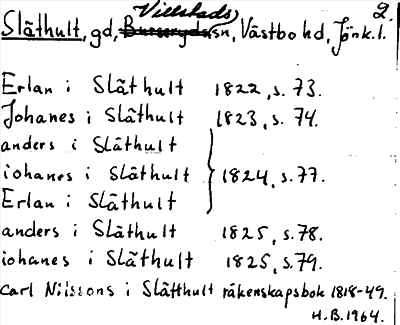 2.
Villstads
Släthult, gd, Burserydssn, Västbo hd, Jönk.l.
Erlan i Släthult 1822, s. 73.
Johanes i Släthult 1823, s. 74.
anders i Släthult
iohanes i Släthult 1824, s. 77.
Erlan i Släthult
anders i Släthult 1825, s. 78.
iohanes i Släthult 1825, s. 79.
Carl Nilssons i Slätthult räkenskapsbok 1818-49.
H.B. 1964.